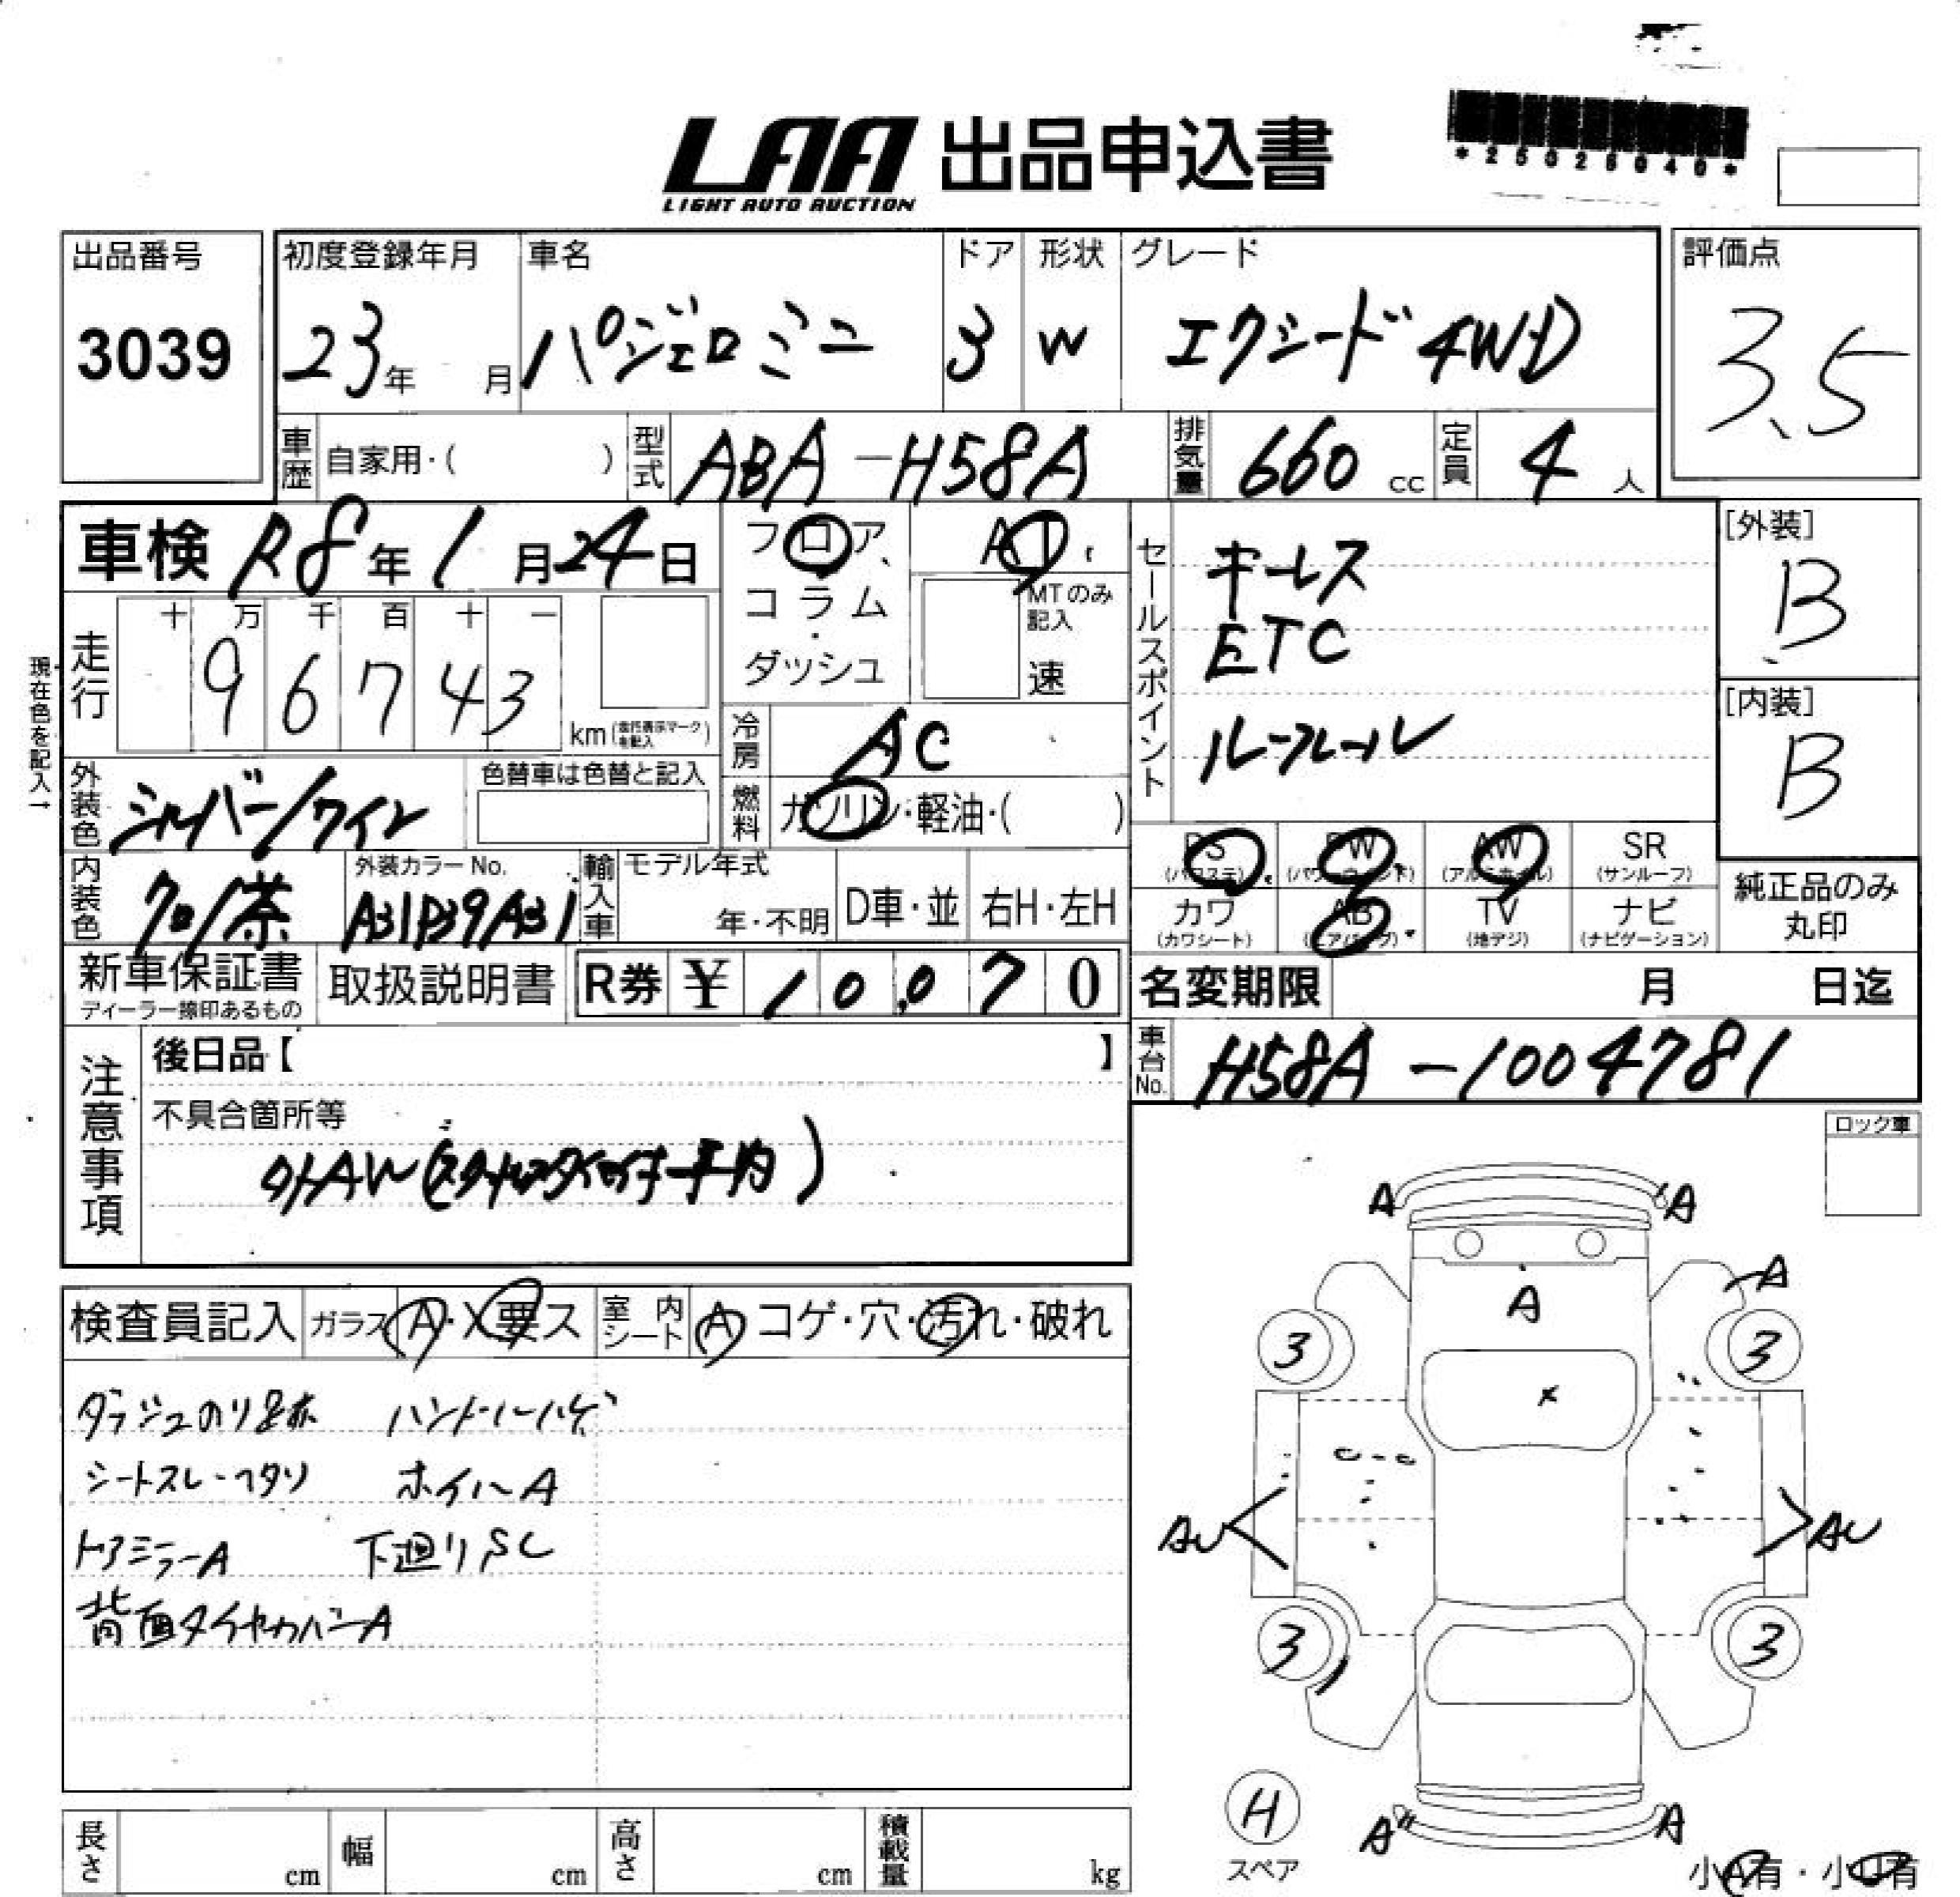 LAA 出品申込書
LIGHT AUTO AUCTION
*25026040*
出品番号
3039
初度登録年月
23年 月
車名
パジェロミニ
ドア
3
形状
W
グレード
エクシード 4WD
評価点
3.5
車歴 自家用・( )
型式 ABA-H58A
排気量 660 cc
定員 4 人
車検 R8年1月24日
フロア、
コラム
・
ダッシュ
AT
MTのみ
記入
速
セールスポイント
キーレス
ETC
ルーフレール
[外装]
B
[内装]
B
現在色を記入→
走行
十 万 千 百 十 一
9 6 7 4 3
km
冷房 AC
燃料 ガソリン・軽油・( )
外装色 シルバー/ワイン
色替車は色替と記入
内装色 クロ/茶
外装カラーNo.
A31P39A31
輸入車
モデル年式
年・不明
D車・並
右H・左H
PS
(パワステ)
PW
(パワーウィンド)
AW
(アルミホイル)
SR
(サンルーフ)
カワ
(カワシート)
AB
(エアバッグ)
TV
(地デジ)
ナビ
(ナビゲーション)
純正品のみ
丸印
新車保証書
ディーラー捺印あるもの
取扱説明書
R券 ¥ 10,070
名変期限 月 日迄
車台No. H58A-1004781
注意事項
後日品【 】
不具合箇所等
外AW(
ロック車
検査員記入
ガラス A・X要ス
室内シート A コゲ・穴・汚れ・破れ
ダッシュのり跡 ハンドルハゲ
シートスレ・ヘタリ ホイールA
ドアミラーA 下廻りSC
背面タイヤカバーA
A A
A
A
3 3
X
AU AU
3 3
H
スペア
A A
小A有・小U有
長さ cm
幅 cm
高さ cm
積載量 kg